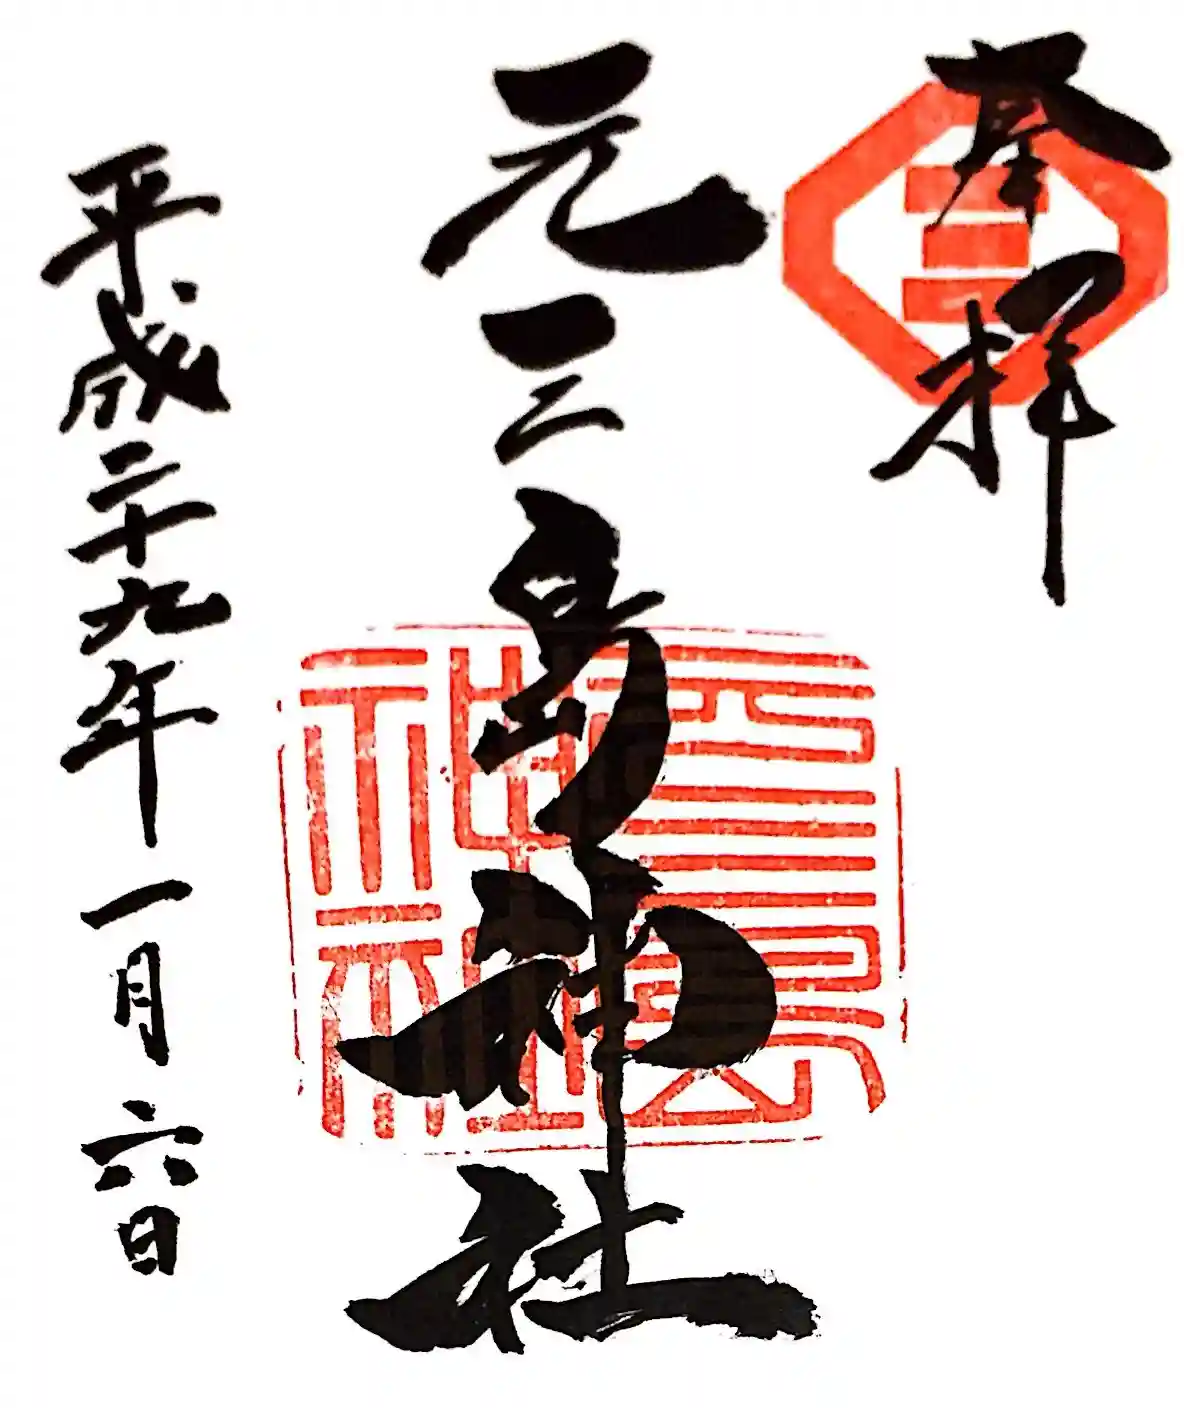 奉拝
元三島神社
平成二十九年一月六日
元三島神社